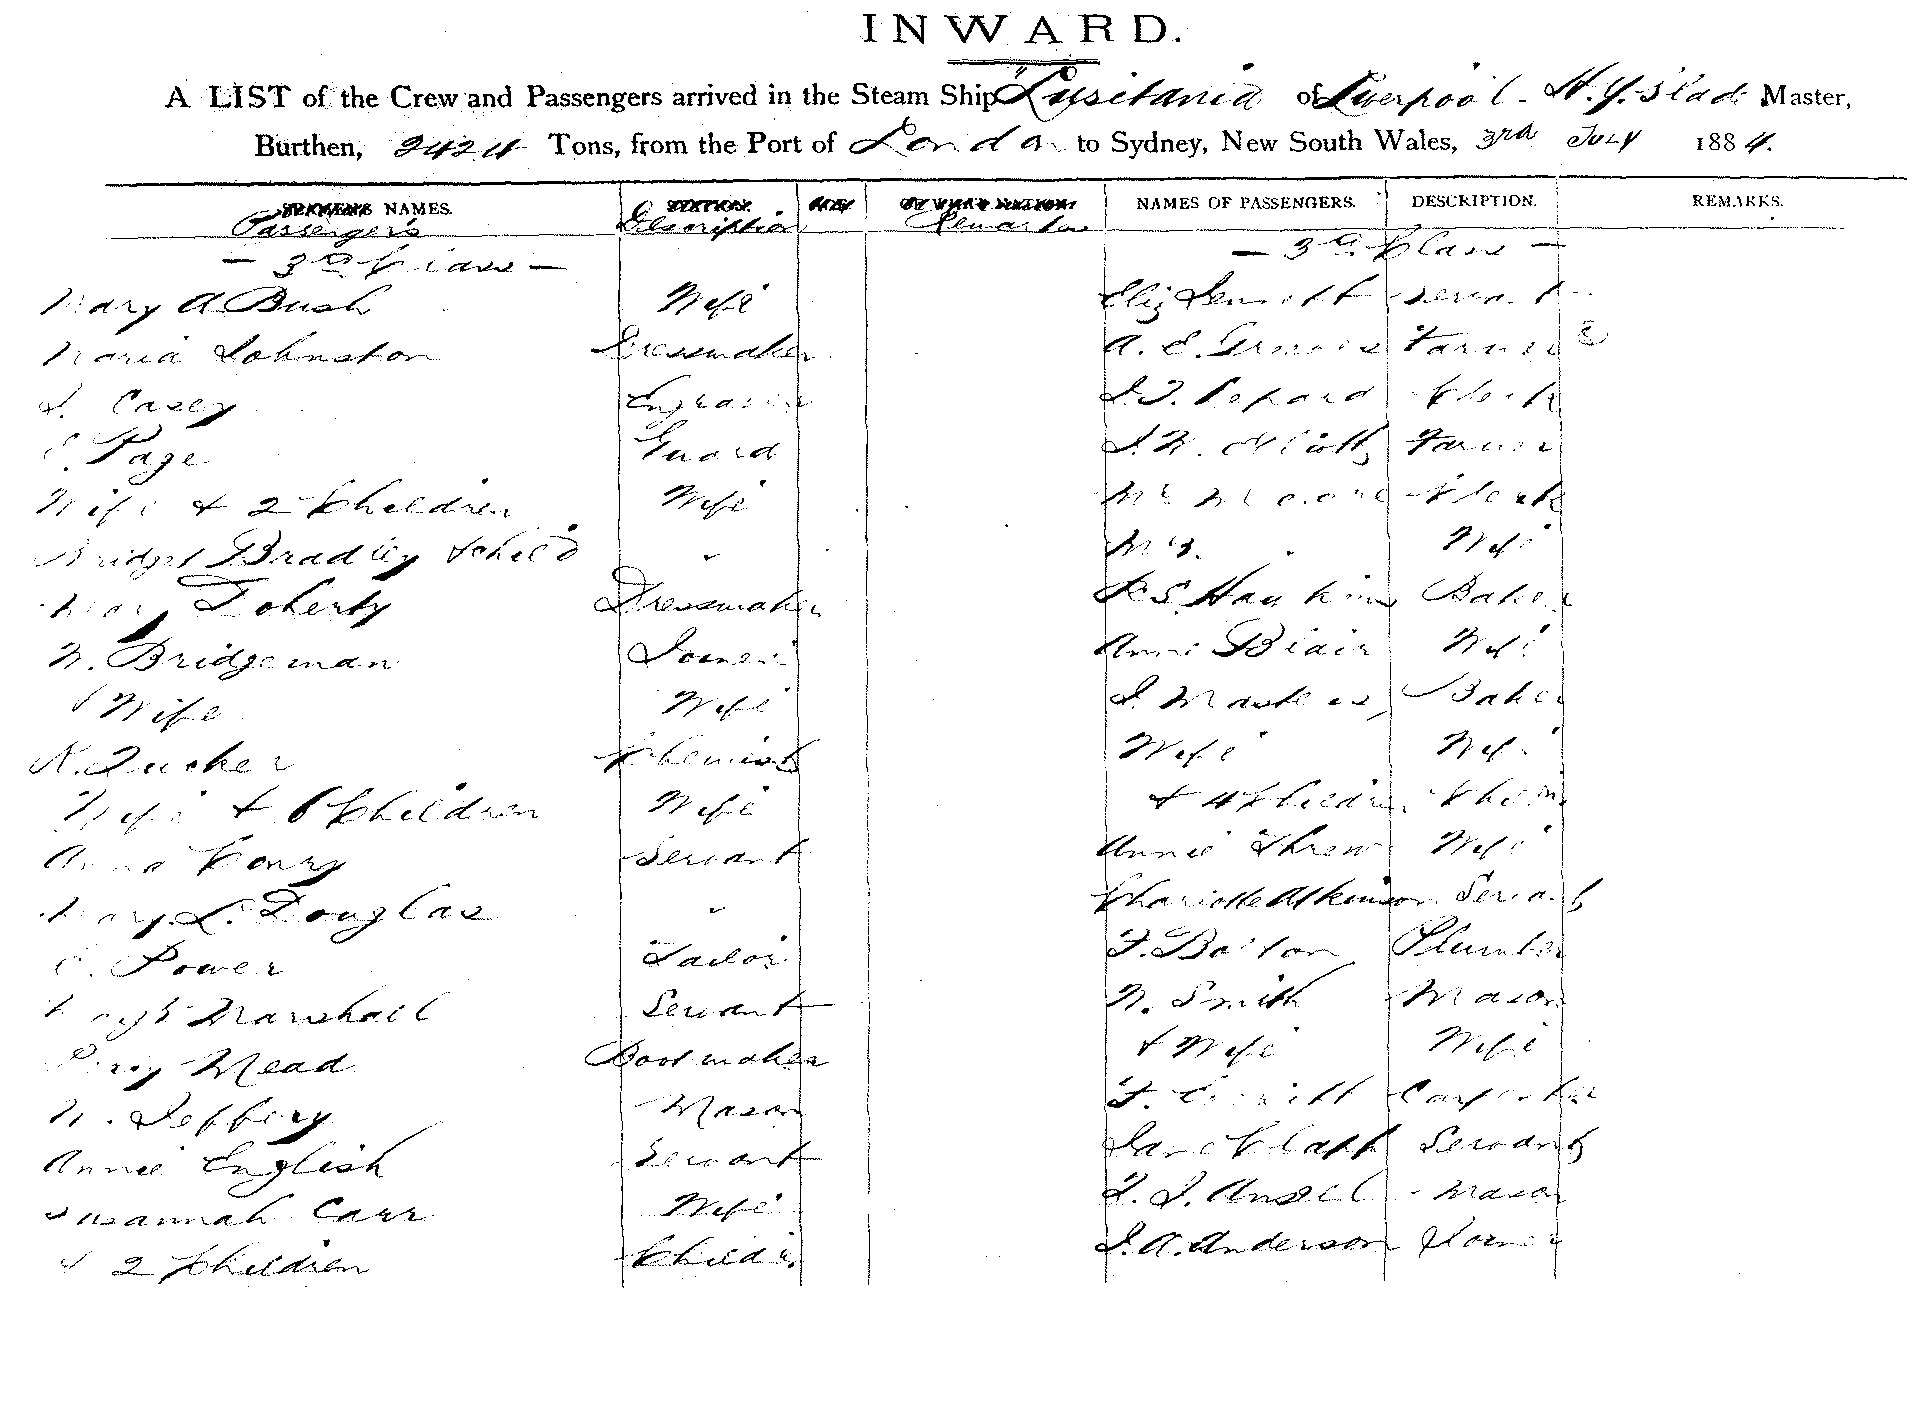 INWARD.
A LIST of the Crew and Passengers arrived in the Steam Ship Lusitania of Liverpool. Master,
Burthen, 2424 Tons, from the Port of London to Sydney, New South Wales, 3rd July 1884.
NAMES. NAMES OF PASSENGERS. DESCRIPTION. REMARKS.
Passengers Description Remarks
— 3rd Class — — 3rd Class —
Mary A Bush Wife Eliz Servant
Maria Johnston Dressmaker A. E. Farmer
J. Casey Engraver Clerk
Page Guard Farmer
Wife & 2 Children Wife Mr Moore Clerk
Bridget Bradley & child " Mrs. " Wife
Mary Doherty Dressmaker Hawkins Baker
W. Bridgeman Joiner Annie Blair Wife
& Wife Wife J. Masters, Baker
Tucker Chemist Wife Wife
Wife & 6 Children Wife & 4 Children
Anna Conry Servant Annie Threw Wife
Mary L. Douglas " Charlotte Atkinson Servant
Power Tailor F. Bolton Plumber
Marshall Servant W. Smith Mason
Mead Bootmaker & Wife Wife
W. Jeffery Mason F. Carpenter
Annie English Servant Jane Clapp Servant
Susannah Carr Wife Ansell Mason
& 2 Children J. A. Anderson Joiner